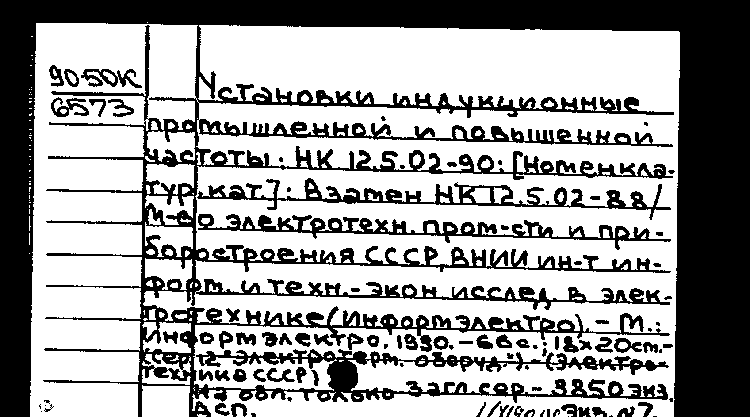 90-50К
6573
Установки индукционные
промышленной и повышенной
частоты: НК 12.5.02-90: [Номенкла-
тур. кат.]: Взамен НК 12.5.02-88/
М-во электротехн. пром-сти и при-
боростроения СССР, ВНИИ ин-т ин-
форм. и техн.-экон исслед. в элек-
тротехнике (Информэлектро). - М.:
Информэлектро, 1990. - 66 с.; 18x20 см. -
(Сер 12 "Электротерм. оборуд."). - (Электро-
техника СССР)
На обл. только загл. сер. - 3850 экз.
ДСП. экз. №7